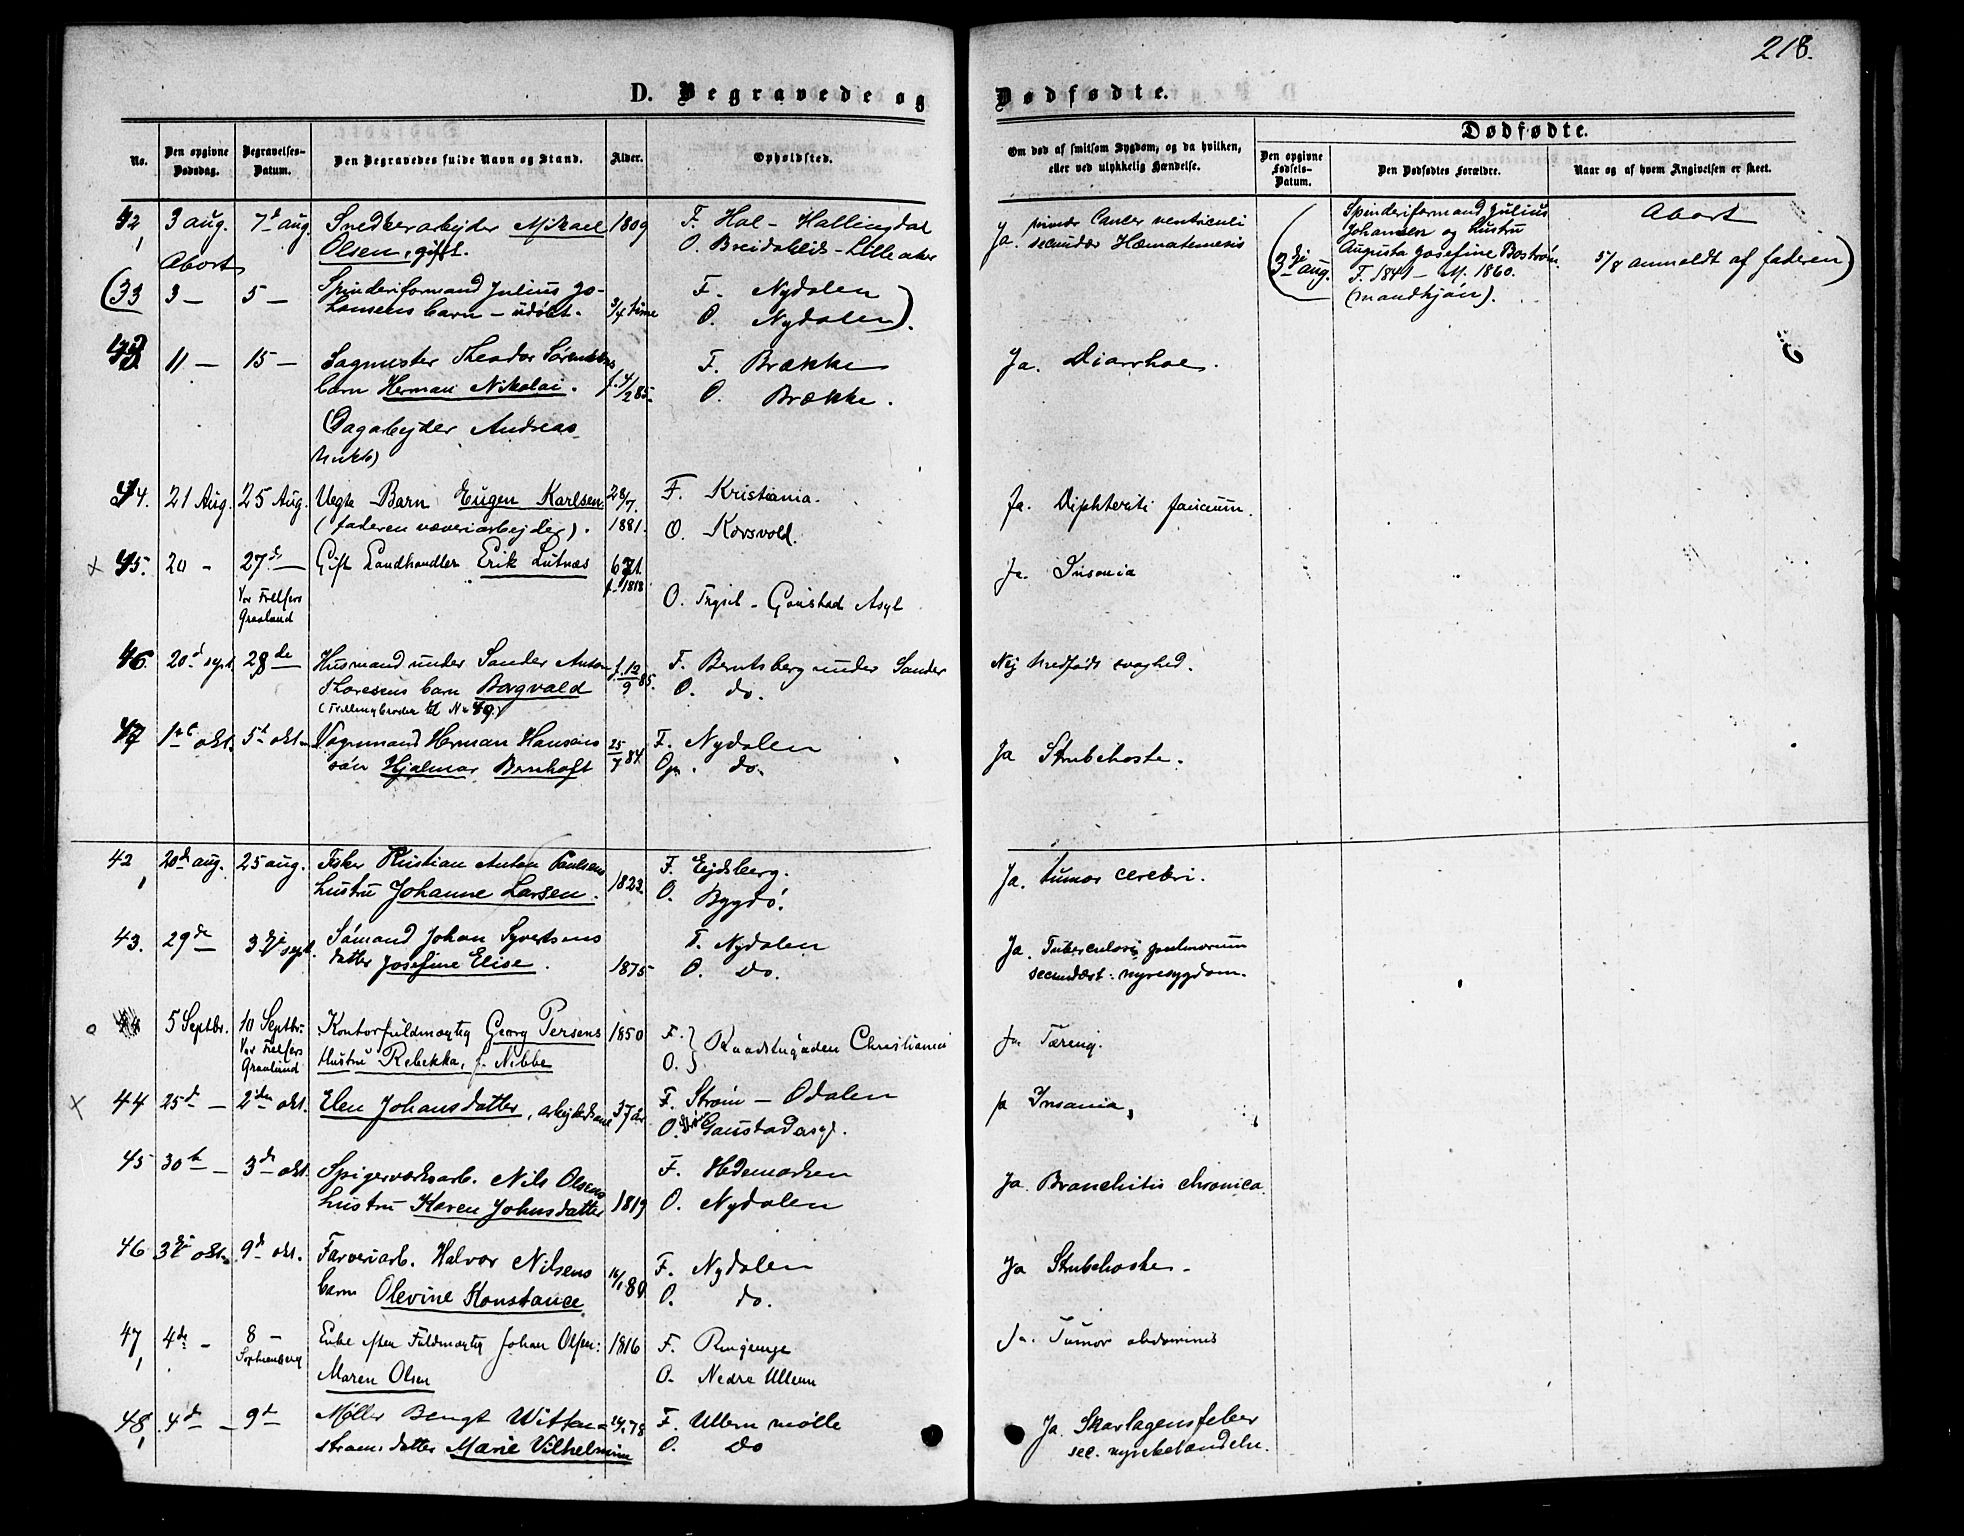 218.
D. Begravede og
Dødfødte.
No.
Den opgivne Dødsdag.
Begravelses-Datum.
Den Begravedes fulde Navn og Stand.
Alder.
Opholdsted.
Om død af smitsom Sygdom, og da hvilken,
eller ved ulykkelig Hændelse.
Dødfødte.
Den opgivne Fødsels-Datum.
Den Dødfødtes Forældre.
Naar og af hvem Angivelsen er skeet.
42, 3 aug. 7de aug. Snedkerarbejder Mikael 1809 F. Hol - Hallingdal
Olsen, gift. O. Breidablik - Lilleaker
Ja. primær Cancer ventriculi
secundær Hæmatemesis
(3dje aug. Spinderiformand Julius
Johansen og hustru
Augusta Josefine Boström.
F. 1841 - M. 1860.
(mandkjøn).
Abort
5/8 anmeldt af faderen)
Abort
(33 3 - 5 - Spinderiformand Julius Jo-
hansens barn - udøbt. 3/4 time F. Nydalen
O. Nydalen).
43 11 - 15 - Sagmester Theodor Sørensens F. Brække
barn Herman Nikolai. f. 4/2 85. O. Brække.
Ja. Diarrhoe.
Dagarbejder Andreas
44. 21 Aug. 25 Aug. Uegte Barn Eugen Karlsen 28/7. 1881. F. Kristiania.
(faderen væveriarbejder). O. Korsvold.
Ja. Diphteriti faucium.
x 45. 20 - 27de - Gift Landhandler Erik Lutnæs 67 f. 1818
Vor Frelsers
Gravlund
O. Trysil - Goustad Asyl
Ja. Insania
46 20de sept. 28de - Husmand under Sander Anton f. 12/9 85. F. Berntsberg under Sander
Thoresens barn Borgvald O. do.
(Tvillingbroder til No 49.)
Nej medfødt svaghed.
47 1ste okt. 5te okt. Vognmand Herman Hansens 25/7 84. F. Nydalen
søn Hjalmar Bernhoft Op. do.
Ja Strubehoste.
42, 20de aug. 25 aug. Fisker Kristian Anton Paulsens F. Ejdsberg.
hustru Johanne Larsen. 1822. O. Bygdø.
Ja. tumor cerebri.
43. 29de - 3dje sept. Sømand Johan Syvertsens F. Nydalen
datter Josefine Elise. 1875 O. do.
Ja. Tuberculosis pulmorum
secundært: nyresygdom.
o 5 Septbr. 10 Septbr. Kontorfuldmægtig Georg Persens 1850 F.
Vor Frelsers
Gravlund Hustru Rebekka, f. Nibbe O. Raadstugaden Christiania
Ja. Tæring.
x 44 25de - 2den okt. Elen Johansdatter, 37 aar F. Strøm - Odalen
O. Goustadasyl.
ja Insania,
45 30te - 3de okt. Spigerværksarb. Nils Olsens F. Hedemarken
hustru Karen Johnsdatter 1819 O. Nydalen
Ja. Bronchitis chronica.
46 3dje okt. 9de okt. Farveriarb. Halvor Nilsens F. Nydalen
barn Olevine Konstance O. do.
Ja Strubehoste.
47, 4de - 8 - Enke efter Fuldmægtig Johan Olsen: 1816 F. Ringerige
Sophienberg
Maren Olsen O. Nedre Ullern
Ja. Tumor abdominis
48, 4de - 9de Møller Bengt Witten- F. Ullern mølle
stroms datter Marie Vilhelmine O. do
Ja. Skarlagensfeber
sec. nyrebetændelse.